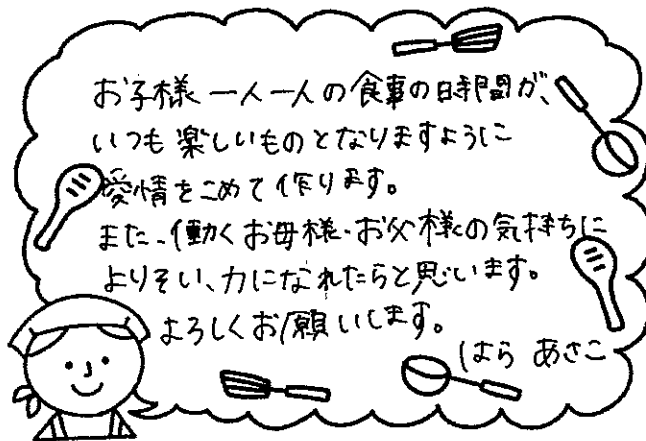 お子様一人一人の食事の時間が、
いつも楽しいものとなりますように
愛情をこめて作ります。
また、働くお母様・お父様の気持ちに
よりそい、力になれたらと思います。
よろしくお願いします。
はら あさこ